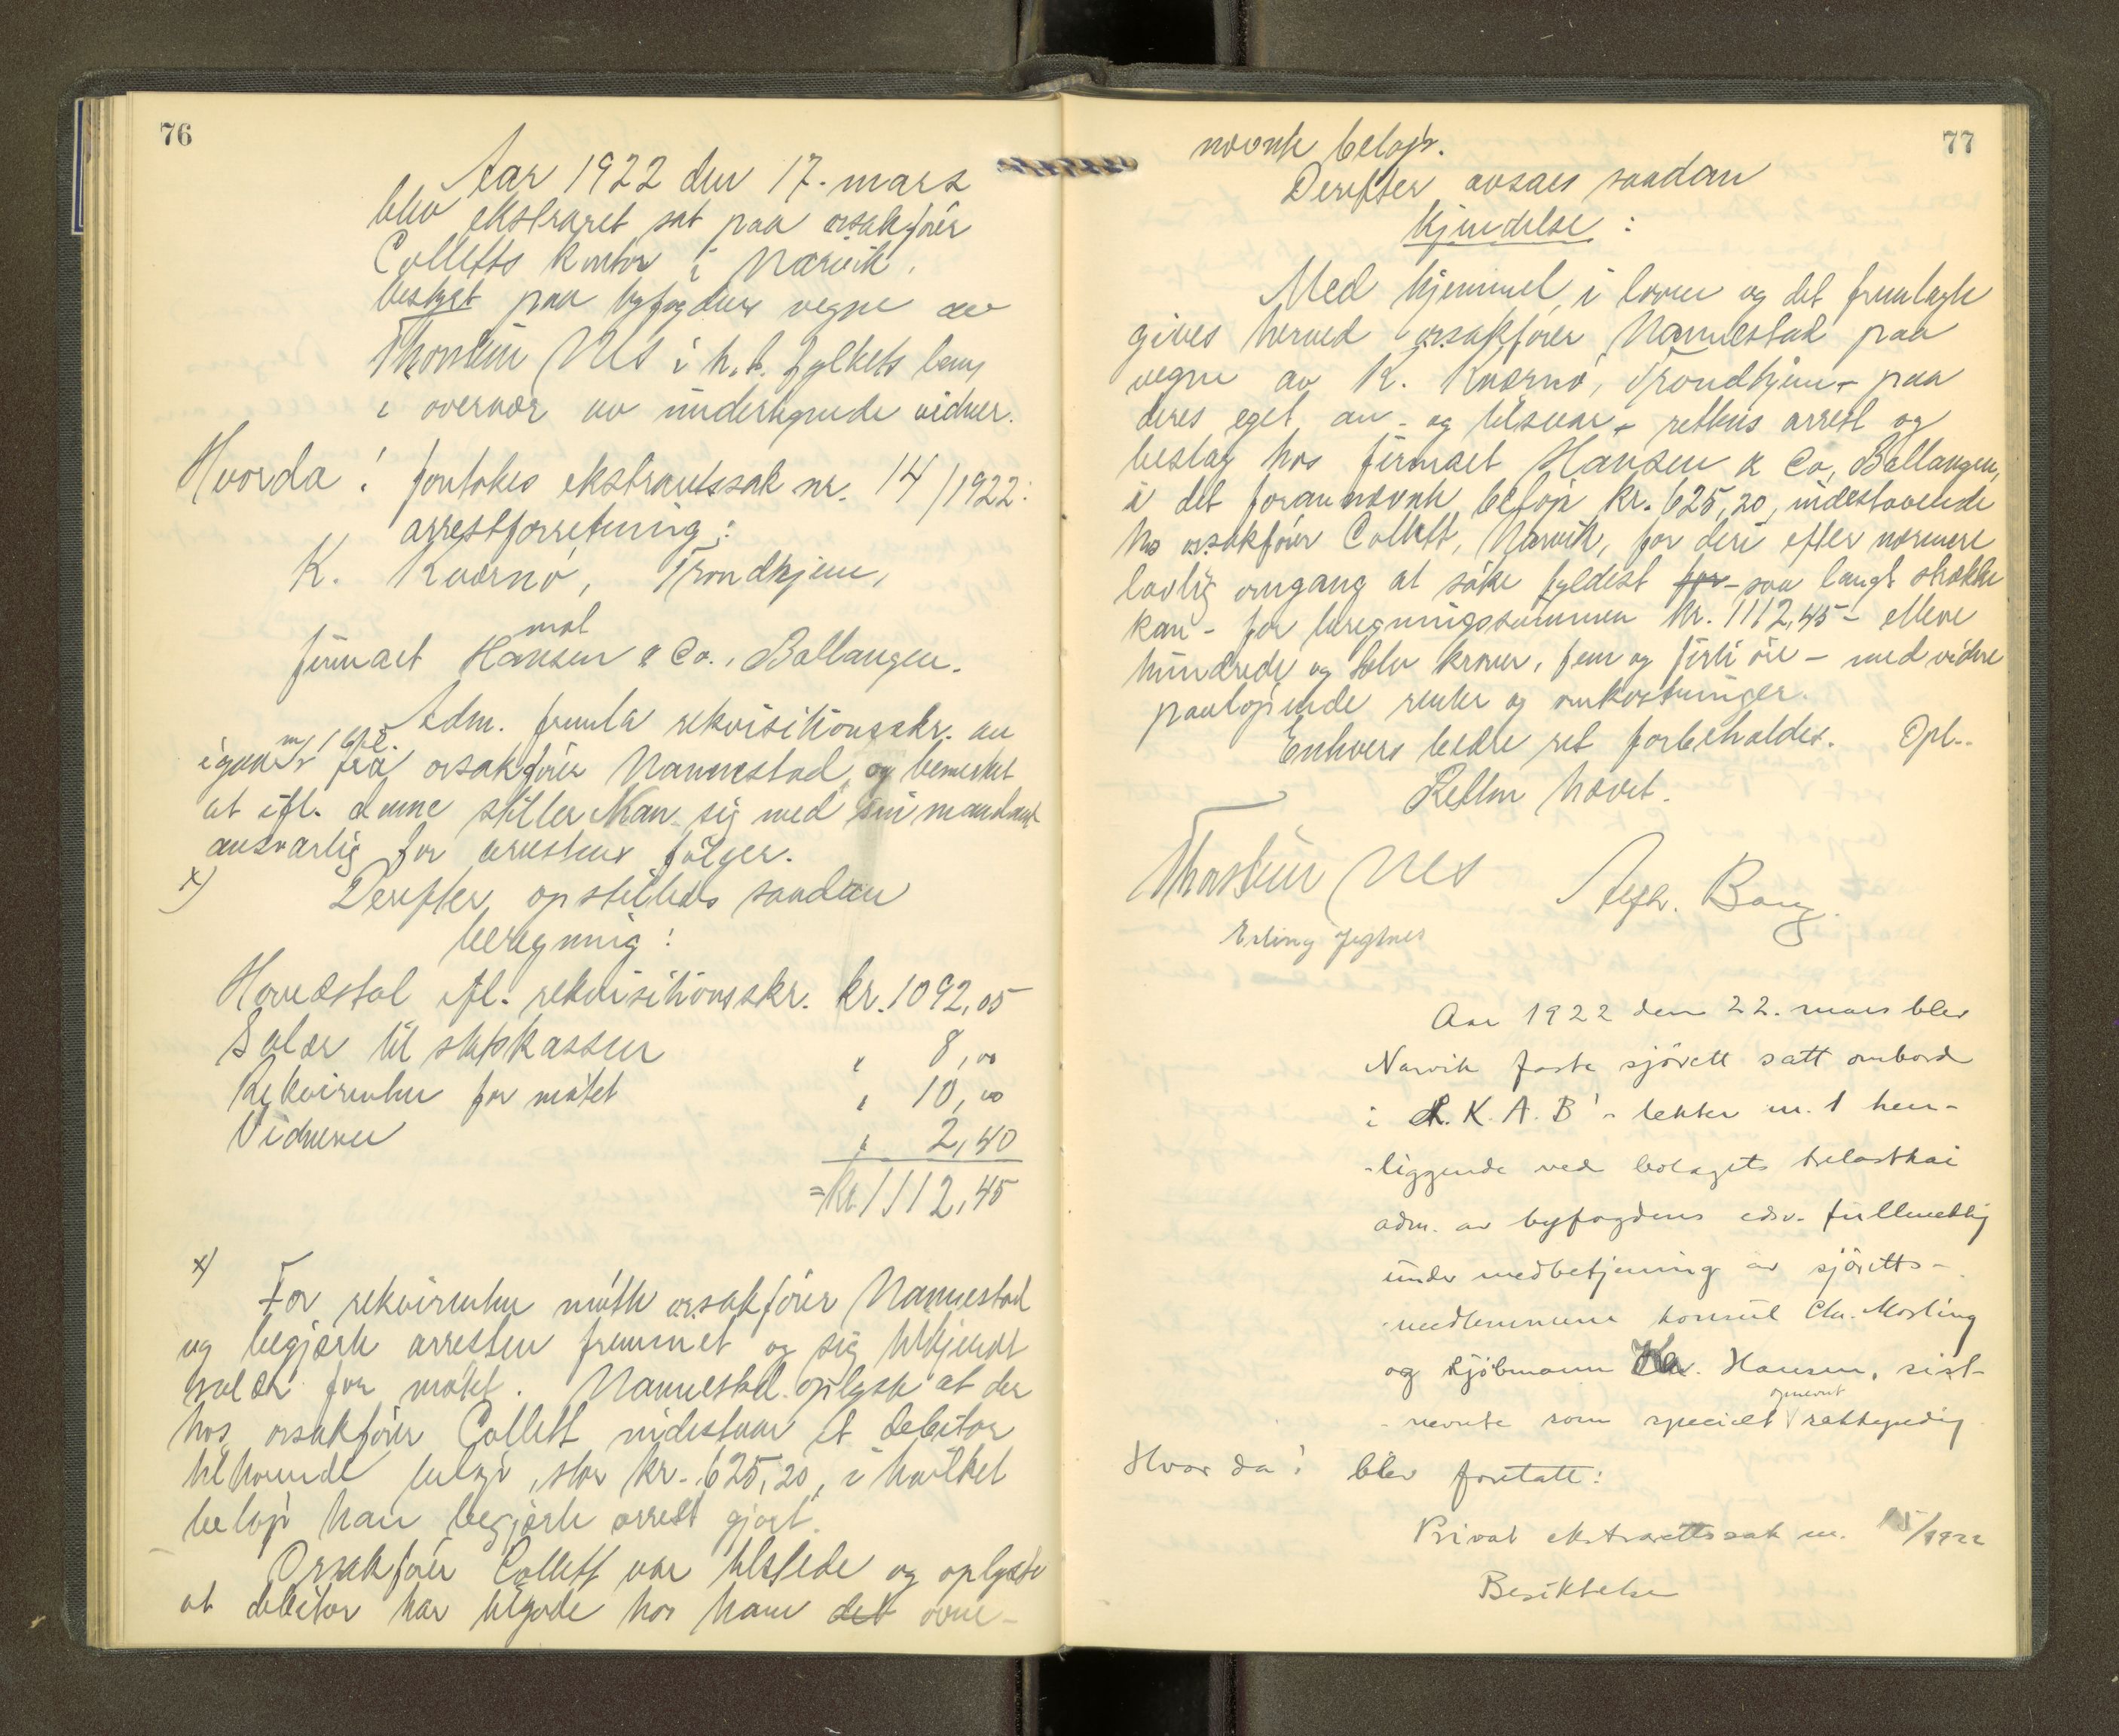 76
Aar 1922 den 17. mars
blev ekstraret sat paa orsakfører
Colletts kontor i Narvik,
bestyret paa byfogdens vegne av
Thorstein Nes i h. t. fylkets bem,
i overvær av undertegnede vidner.
Hvorda: foretokes ekstraretssak nr. 14/1922:
arrestforretning:
K. Kværnø, Trondhjem,
mot
firmaet Hansen & Co., Ballangen.
Adm. fremla rekvisitionsskr. an
igaar m/ 1 bil. fra orsakfører Nannestad, og bemerket
at ifl. denne stiller Nan. sig med sin mandant
ansvarlig for arrestens følger.
x) Derefter opstilledes saadan
beregning:
Hovedstol ifl. rekvisitionsskr. kr. 1092,05
Salær til statskassen " 8,00
Rekvirenten for møtet " 10,00
Vidnerne " 2,40
= kr. 1112,45
x) For rekvirenten møtte orsakfører Nannestad
og begjærte arresten fremmet og sig tilkjendt
salær for møtet. Nannestad oplyste at der
hos orsakfører Collett indestaar et debitor
tilhørende beløp, stor kr. 625,20, i hvilket
beløp han begjærte arrest gjort.
Orsakfører Collett var tilstede og oplyste
at debitor har tilgode hos ham det ovne-
77
nævnte beløp.
Derefter avsaes saadan
kjendelse:
Med hjemmel i loven og det fremlagte
gives herved orsakfører Nannestad paa
vegne av K. Kværnø, Trondhjem - paa
deres eget an- og tilsvar - rettens arrest og
beslag hos firmaet Hansen & Co, Ballangen,
i det forannævnte beløp kr. 625,20, indestaaende
hos orsakfører Collett, Narvik, for deri efter nærmere
lovlig omgang at søke fyldest for - saa langt strække
kan - for beregningssummen kr. 1112,45 - elleve
hundrede og tolv kroner, fem og førti øre - med videre
paaløpende renter og omkostninger.
Enhvers bedre ret forbeholdes. Opl..
Retten hævet.
Thorstein Nes Alfr. Bang.
Erling
Aar 1922 den 22. mars blev
Narvik faste sjørett satt ombord
i L. K. A. B's lekter nr. 1 hen-
-liggende ved bolagets trelastkai
adm. av byfogdens edsv. fullmektig
under medbetjening av sjøretts-
-medlemmene konsul Chr. Mosling
og kjøbmann Hansen, sist-
-nevnte som specielt opnevnt sakkyndig
Hvor da: blev foretatt:
Privat ekstrarettssak nr. 15/1922
Besiktelse